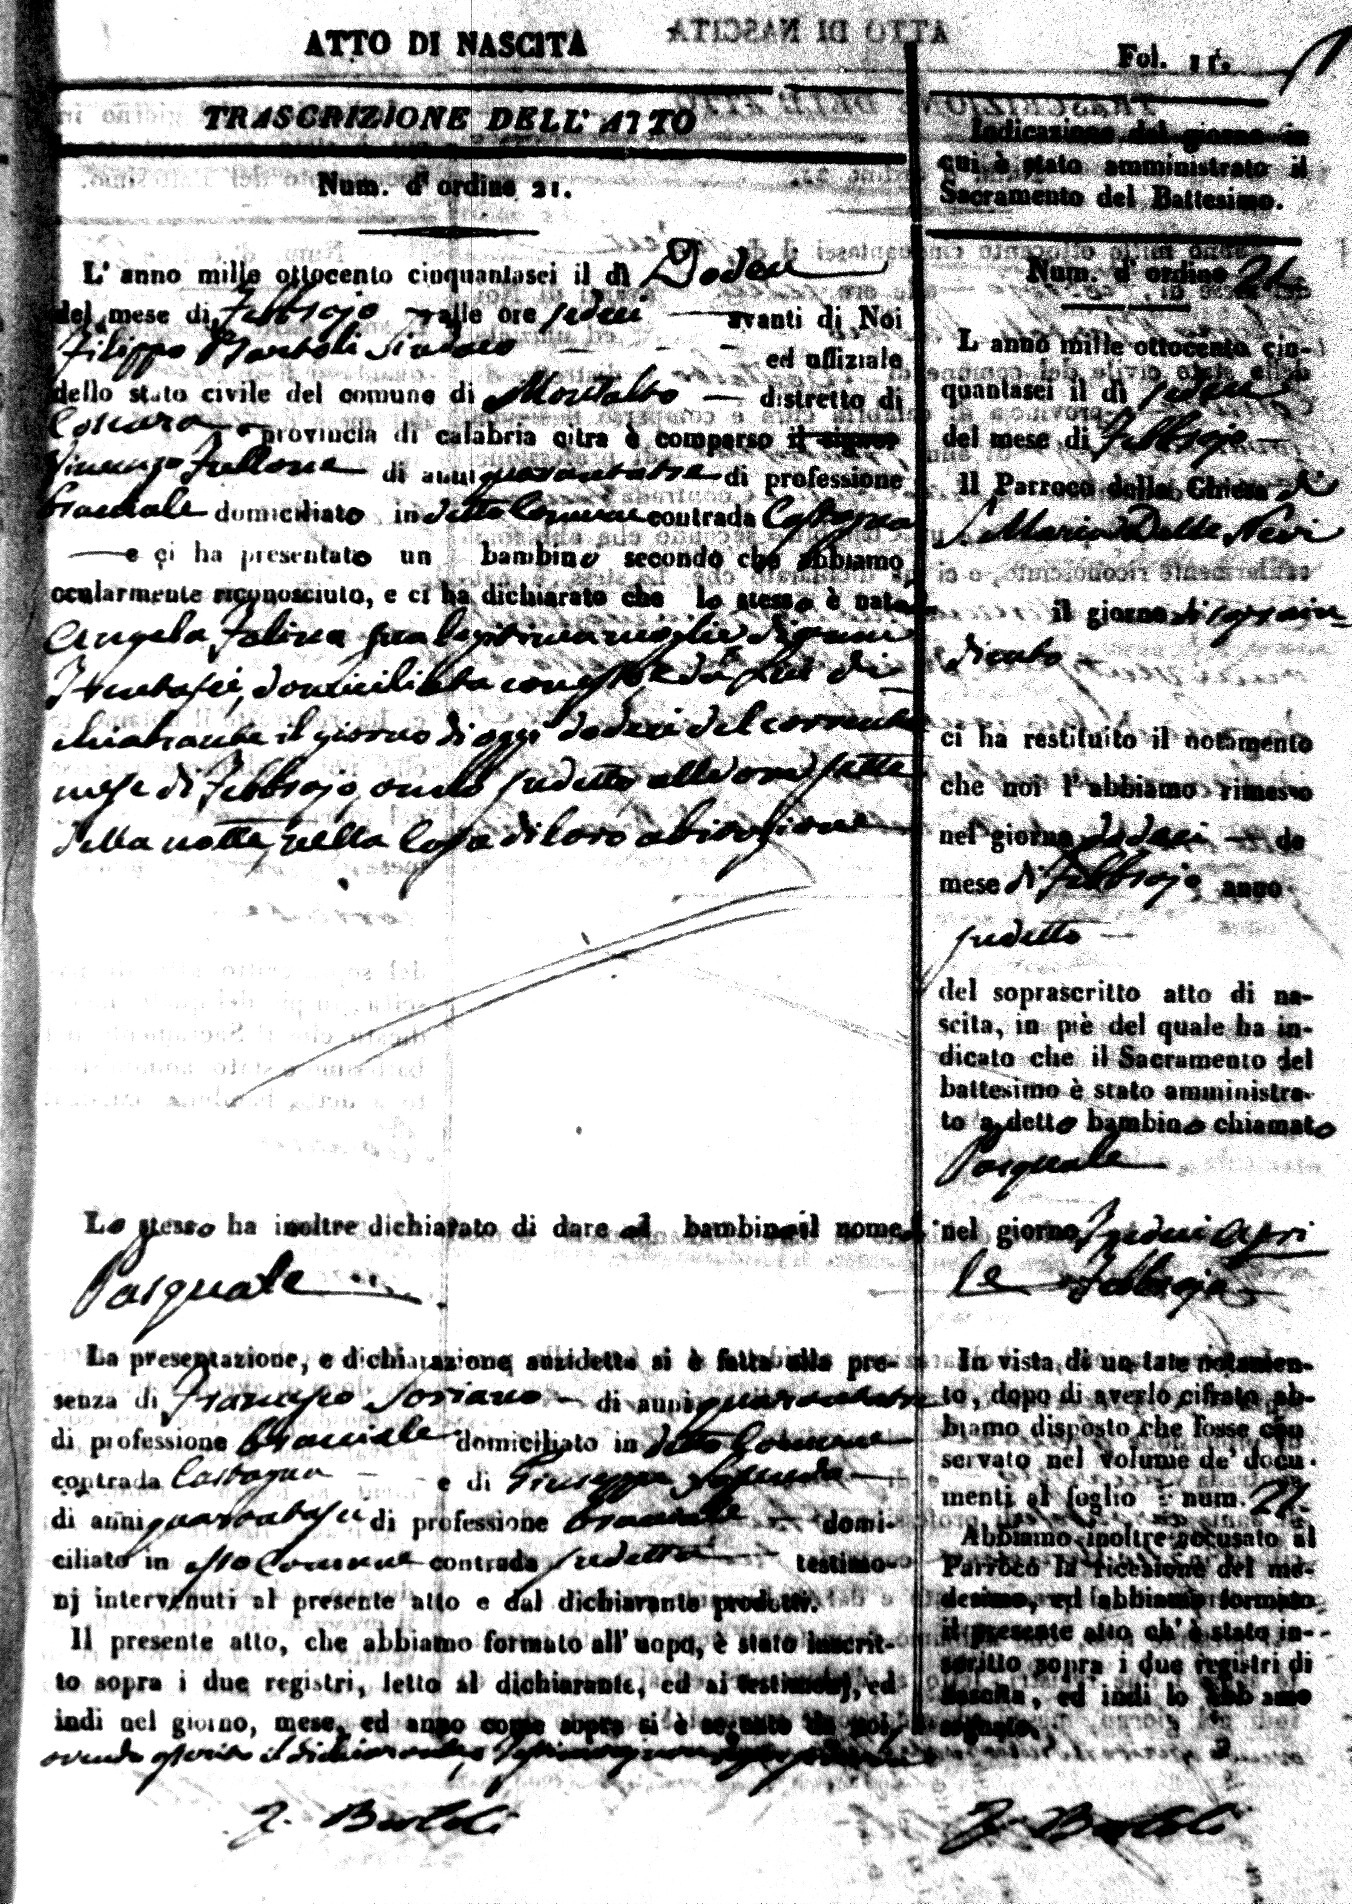 ATTO DI NASCITA
Fol. 11.
TRASCRIZIONE DELL' ATTO
Num. d' ordine 21.
L' anno mille ottocento cinquantasei il dì Dodeci
del mese di Febbrajo alle ore sedeci avanti di Noi
Filippo Bartoli Sindaco ed uffiziale
dello stato civile del comune di Montalto distretto di
Cosenza provincia di calabria citra è comparso il signor
Vincenzo Fullone di anni quarantatre di professione
Bracciale domiciliato in detto Comune contrada Castagna
e ci ha presentato un bambino secondo che abbiamo
ocularmente riconosciuto, e ci ha dichiarato che lo stesso è nato da
Angela sua legittima moglie di anni
trentasei, domiciliata con esso e da lui di
chiarante il giorno di oggi dodeci del corrente
mese di Febbrajo, anno sudetto alle ore sette
della notte, nella Casa di loro abitazione
Lo stesso ha inoltre dichiarato di dare al bambino il nome di
Pasquale
La presentazione, e dichiarazione anzidetta si è fatta alla pre-
senza di Francesco Soriano di anni quarantatre
di professione Bracciale domiciliato in detto Comune
contrada Castagna e di Giuseppe
di anni quarantasei di professione Bracciale domi-
ciliato in esso Comune contrada sudetta testimo-
nj intervenuti al presente atto e dal dichiarante prodotti.
Il presente atto, che abbiamo formato all' uopo, è stato inscrit-
to sopra i due registri, letto al dichiarante, ed ai testimonj, ed
indi nel giorno, mese, ed anno come sopra si è segnato da noi,
avendo il dichiarante, e testimonj non
F. Bartoli
Indicazione del giorno in
cui è stato amministrato il
Sacramento del Battesimo.
Num. d' ordine 21.
L anno mille ottocento cin-
quantasei il dì sedeci
del mese di Febbrajo
Il Parroco della Chiesa di
S. Maria Delle Nevi
il giorno di sopra in-
dicato
ci ha restituito il notamento
che noi l' abbiamo rimesso
nel giorno dodeci de
mese di Febbrajo anno
sudetto
del soprascritto atto di na-
scita, in piè del quale ha in-
dicato che il Sacramento del
battesimo è stato amministra-
to a detto bambino chiamato
Pasquale
nel giorno Tredeci Apri
le Febbrajo
In vista di un tale notamen-
to, dopo di averlo cifrato ab-
biamo disposto che fosse con
servato nel volume de' docu-
menti al foglio num. 21.
Abbiamo inoltre accusato al
Parroco la ricezione del me-
desimo, ed abbiamo formato
il presente atto ch' è stato in-
scritto sopra i due registri di
nascita, ed indi lo abbiamo
segnato.
F. Bartoli